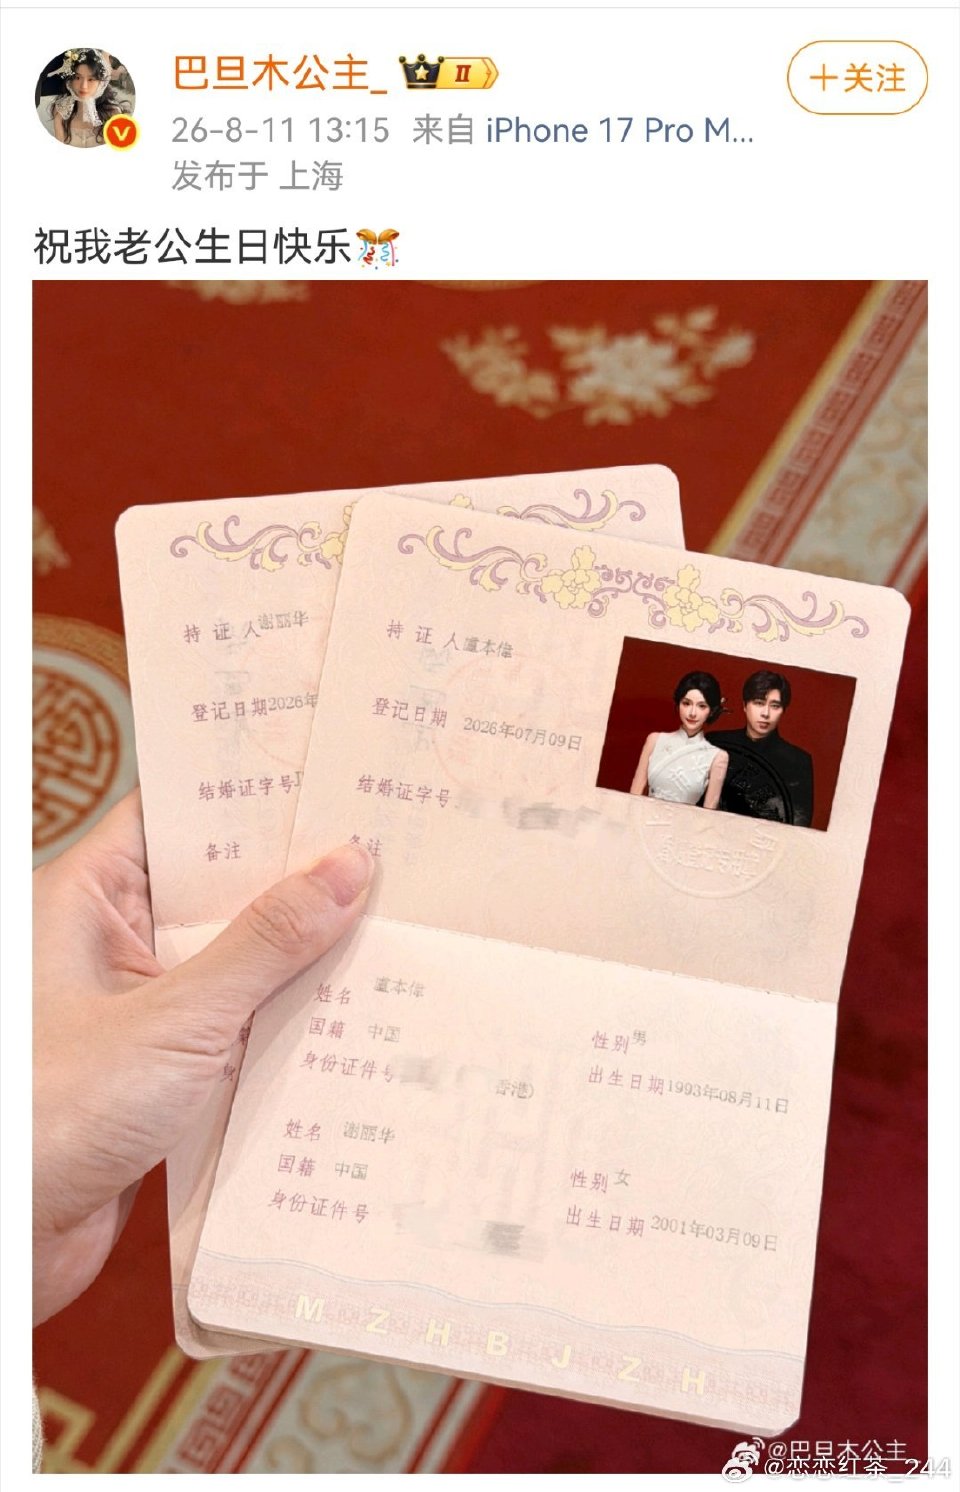 巴旦木公主_
II
+关注
26-8-11 13:15 来自 iPhone 17 Pro M...
发布于 上海
祝我老公生日快乐
持证人谢丽华
登记日期2026年
结婚证字号J
备注
持证人盧本偉
登记日期 2026年07月09日
结婚证字号
备注
姓名 盧本偉
国籍 中国
性别男
身份证件号
香港)
出生日期1993年08月11日
姓名 谢丽华
国籍 中国
性别女
身份证件号
出生日期2001年03月09日
籍
身
M Z H B J Z H
@巴旦木公主_
@恋恋红茶_244